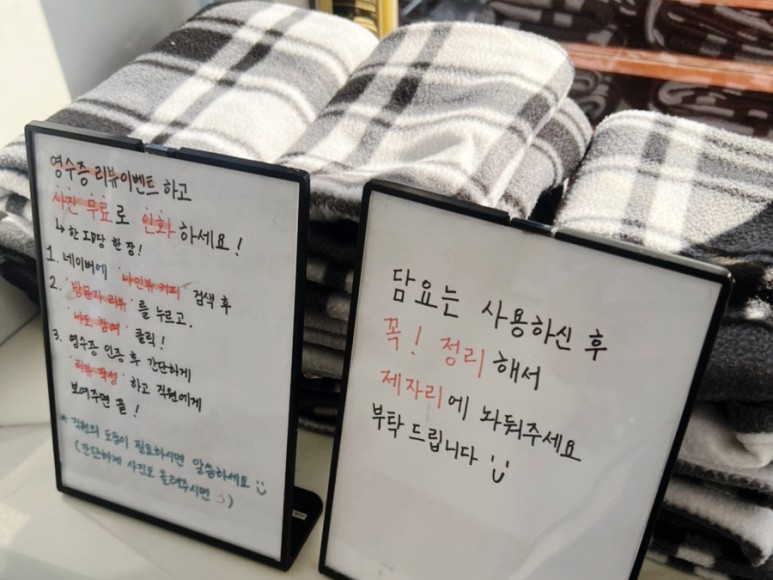 영수증 리뷰이벤트 하고
사진 무료로 인화 하세요!
↳ 한 ID당 한 장!
1. 네이버에 '나인뷰 커피' 검색 후
2. '방문자 리뷰' 를 누르고.
'나도 참여' 클릭!
3. 영수증 인증 후 간단하게
'리뷰 작성' 하고 직원에게
보여주면 끝!
* 직원의 도움이 필요하시면 말씀하세요
(간단하게 사진도 올려주시면 )
담요는 사용하신 후
꼭! 정리해서
제자리에 놔둬주세요
부탁 드립니다